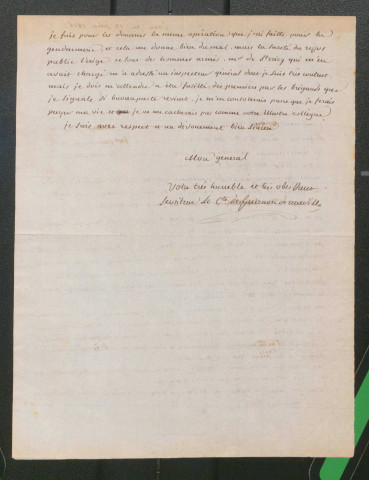 je fais pour les douanes la meme opération que j'ai faitte pour la
gendarmerie et cela me donne bien du mal, mais la sureté du repos
public l'exige ce sont des hommes armés. mr de qui m'en
avait chargé m'a adressé un inspecteur général dont je suis très content
mais je dois m'attendre a etre fusillé des premiers par les brigands que
je signale si buonaparte revient, je m'en consolerais parce que je ferais
payer ma vie et que je ne me cacherais pas comme votre illustre collègue
je suis avec respect et un devouement bien sincere
Mon général
Votre très humble et très obeissant
serviteur le Cte de